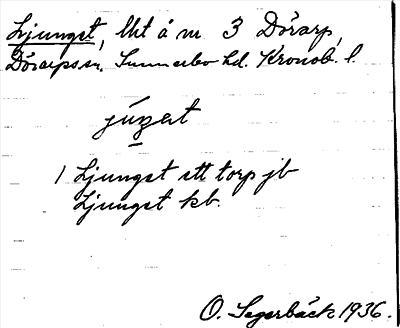 Ljungst, lht å nr 3 Dörarp,
Dörarps sn. Sunnerbo hd. Kronob. l.
júŋ̠ət
1 Ljungst ett torp jb
Ljungst kb.
O. Segerbäck 1936.